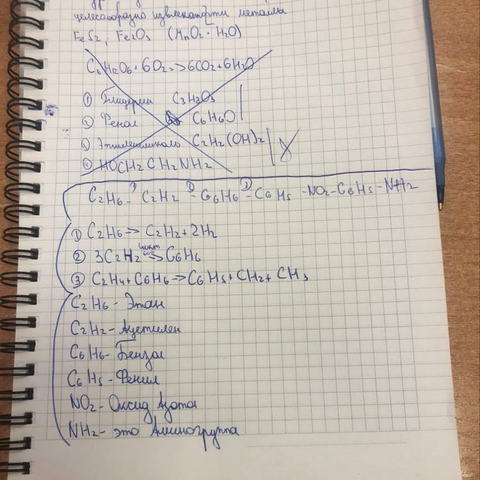 целесообразно извлекать эти металлы
FeS2, Fe2O3 (MnO2 · H2O)
C6H12O6+6O2=>6CO2+6H2O
① Глицерин C3H8O3
② Фенол C6H6O
③ Этиленгликоль C2H2(OH)2
④ HOCH2CH2NH2
C2H6 -① C2H2 -② C6H6 -③ C6H5 - NO2 - C6H5 - NH2
① C2H6 => C2H2 + 2H2
② 3C2H2 => C6H6
③ C2H4 + C6H6 -> C6H5 + CH2 + CH3
C2H6 - Этан
C2H2 - Ацетилен
C6H6 - Бензол
C6H5 - Фенил
NO2 - Оксид Азота
NH2 - это Аминогруппа